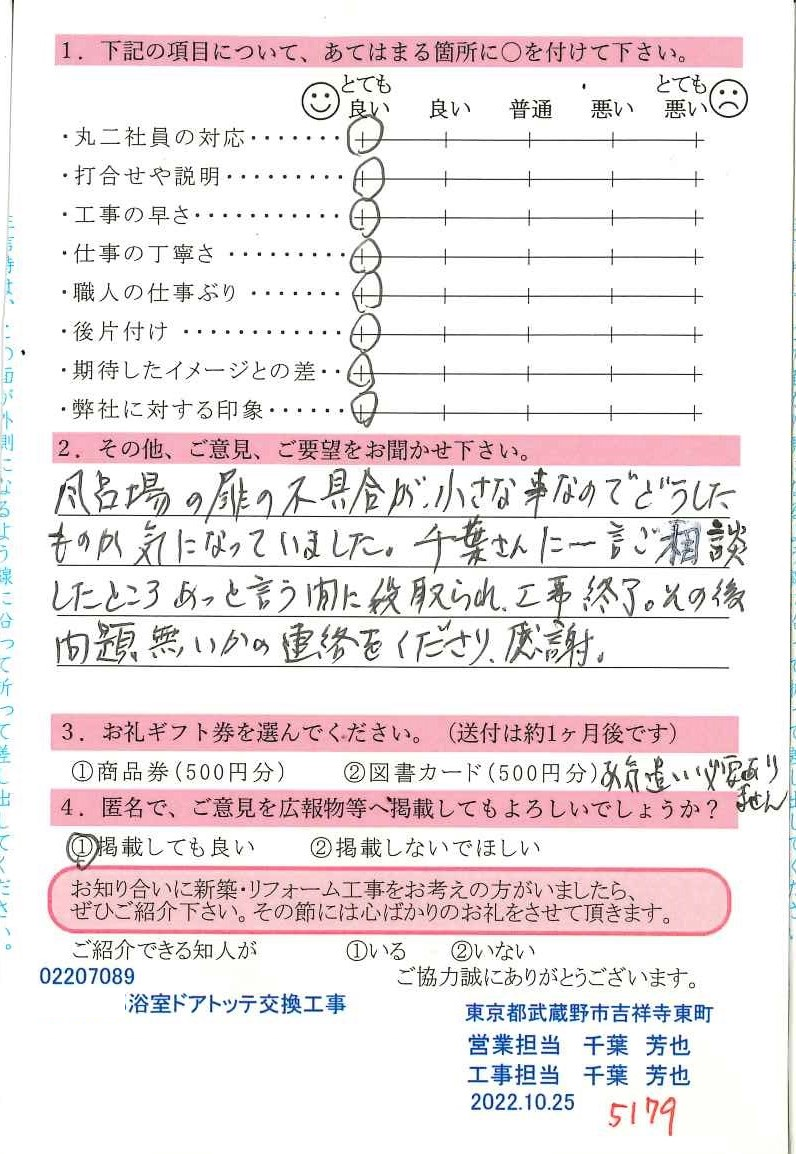 1．下記の項目について、あてはまる箇所に○を付けて下さい。
とても良い 良い 普通 悪い とても悪い
・丸二社員の対応・・・・・・・
・打合せや説明・・・・・・・・・
・工事の早さ・・・・・・・・・・・
・仕事の丁寧さ・・・・・・・・・
・職人の仕事ぶり・・・・・・・
・後片付け・・・・・・・・・・・・
・期待したイメージとの差・・
・弊社に対する印象・・・・・・
2．その他、ご意見、ご要望をお聞かせ下さい。
風呂場の扉の不具合が、小さな事なのでどうした
ものか気になっていました。千葉さんに一言ご相談
したところあっと言う間に段取られ、工事終了。その後
問題無いかの連絡をくださり、感謝。
3．お礼ギフト券を選んでください。（送付は約1ヶ月後です）
①商品券(500円分) ②図書カード(500円分) お気遣い必要あり
ません
4．匿名で、ご意見を広報物等へ掲載してもよろしいでしょうか？
①掲載しても良い ②掲載しないでほしい
お知り合いに新築・リフォーム工事をお考えの方がいましたら、
ぜひご紹介下さい。その節には心ばかりのお礼をさせて頂きます。
ご紹介できる知人が ①いる ②いない
02207089
ご協力誠にありがとうございます。
浴室ドアトッテ交換工事
東京都武蔵野市吉祥寺東町
営業担当 千葉 芳也
工事担当 千葉 芳也
2022.10.25
5179